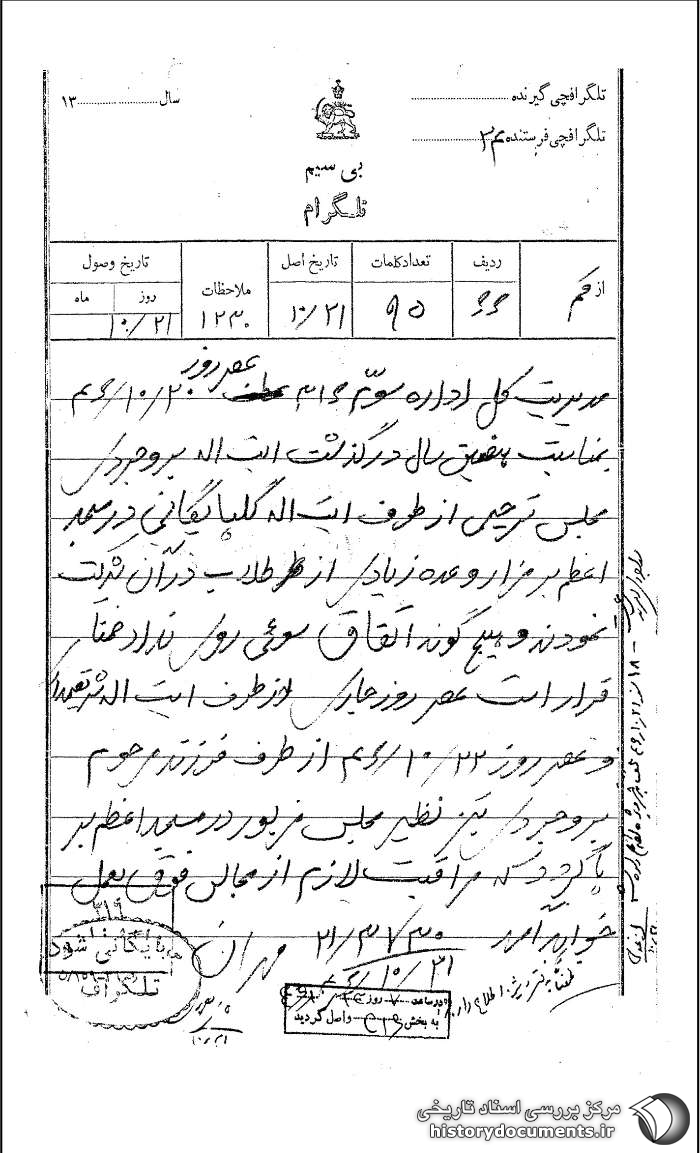 تلگرافچی گیرنده
سال ۱۳
تلگرافچی فرستنده
بی سیم
تلگرام
از قم
ردیف
تعداد کلمات ۹۵
تاریخ اصل ۱۰/۲۱
ملاحظات ۱۲۳۰
تاریخ وصول
روز ماه
۱۰/۲۱
مدیریت کل اداره سوم ۳۱۶ عصر روز ۴۶/۱۰/۲۰
بمناسبت هفتمین سال درگذشت ایت اله بروجردی
مجلس ترحیمی از طرف ایت اله گلپایگانی در مسجد
اعظم برگزار و عده زیادی از طلاب در آن شرکت
نمودند و هیچ گونه اتفاق سوئی روی نداد ضمناً
قرار است عصر روز جاری از طرف ایت اله شریعتمداری
و عصر روز ۴۶/۱۰/۲۲ از طرف فرزند مرحوم
بروجردی نیز نظیر مجلس مزبور در مسجد اعظم بر
پا گردد که مراقبت لازم از مجالس فوق بعمل
خواهد آمد
مهران
۱۰/۲۱
بایگانی شود
تلگراف
در ساعت ۷ روز
به بخش ۳۱۶ واصل گردید
مرکز بررسی اسناد تاریخی
historydocuments.ir